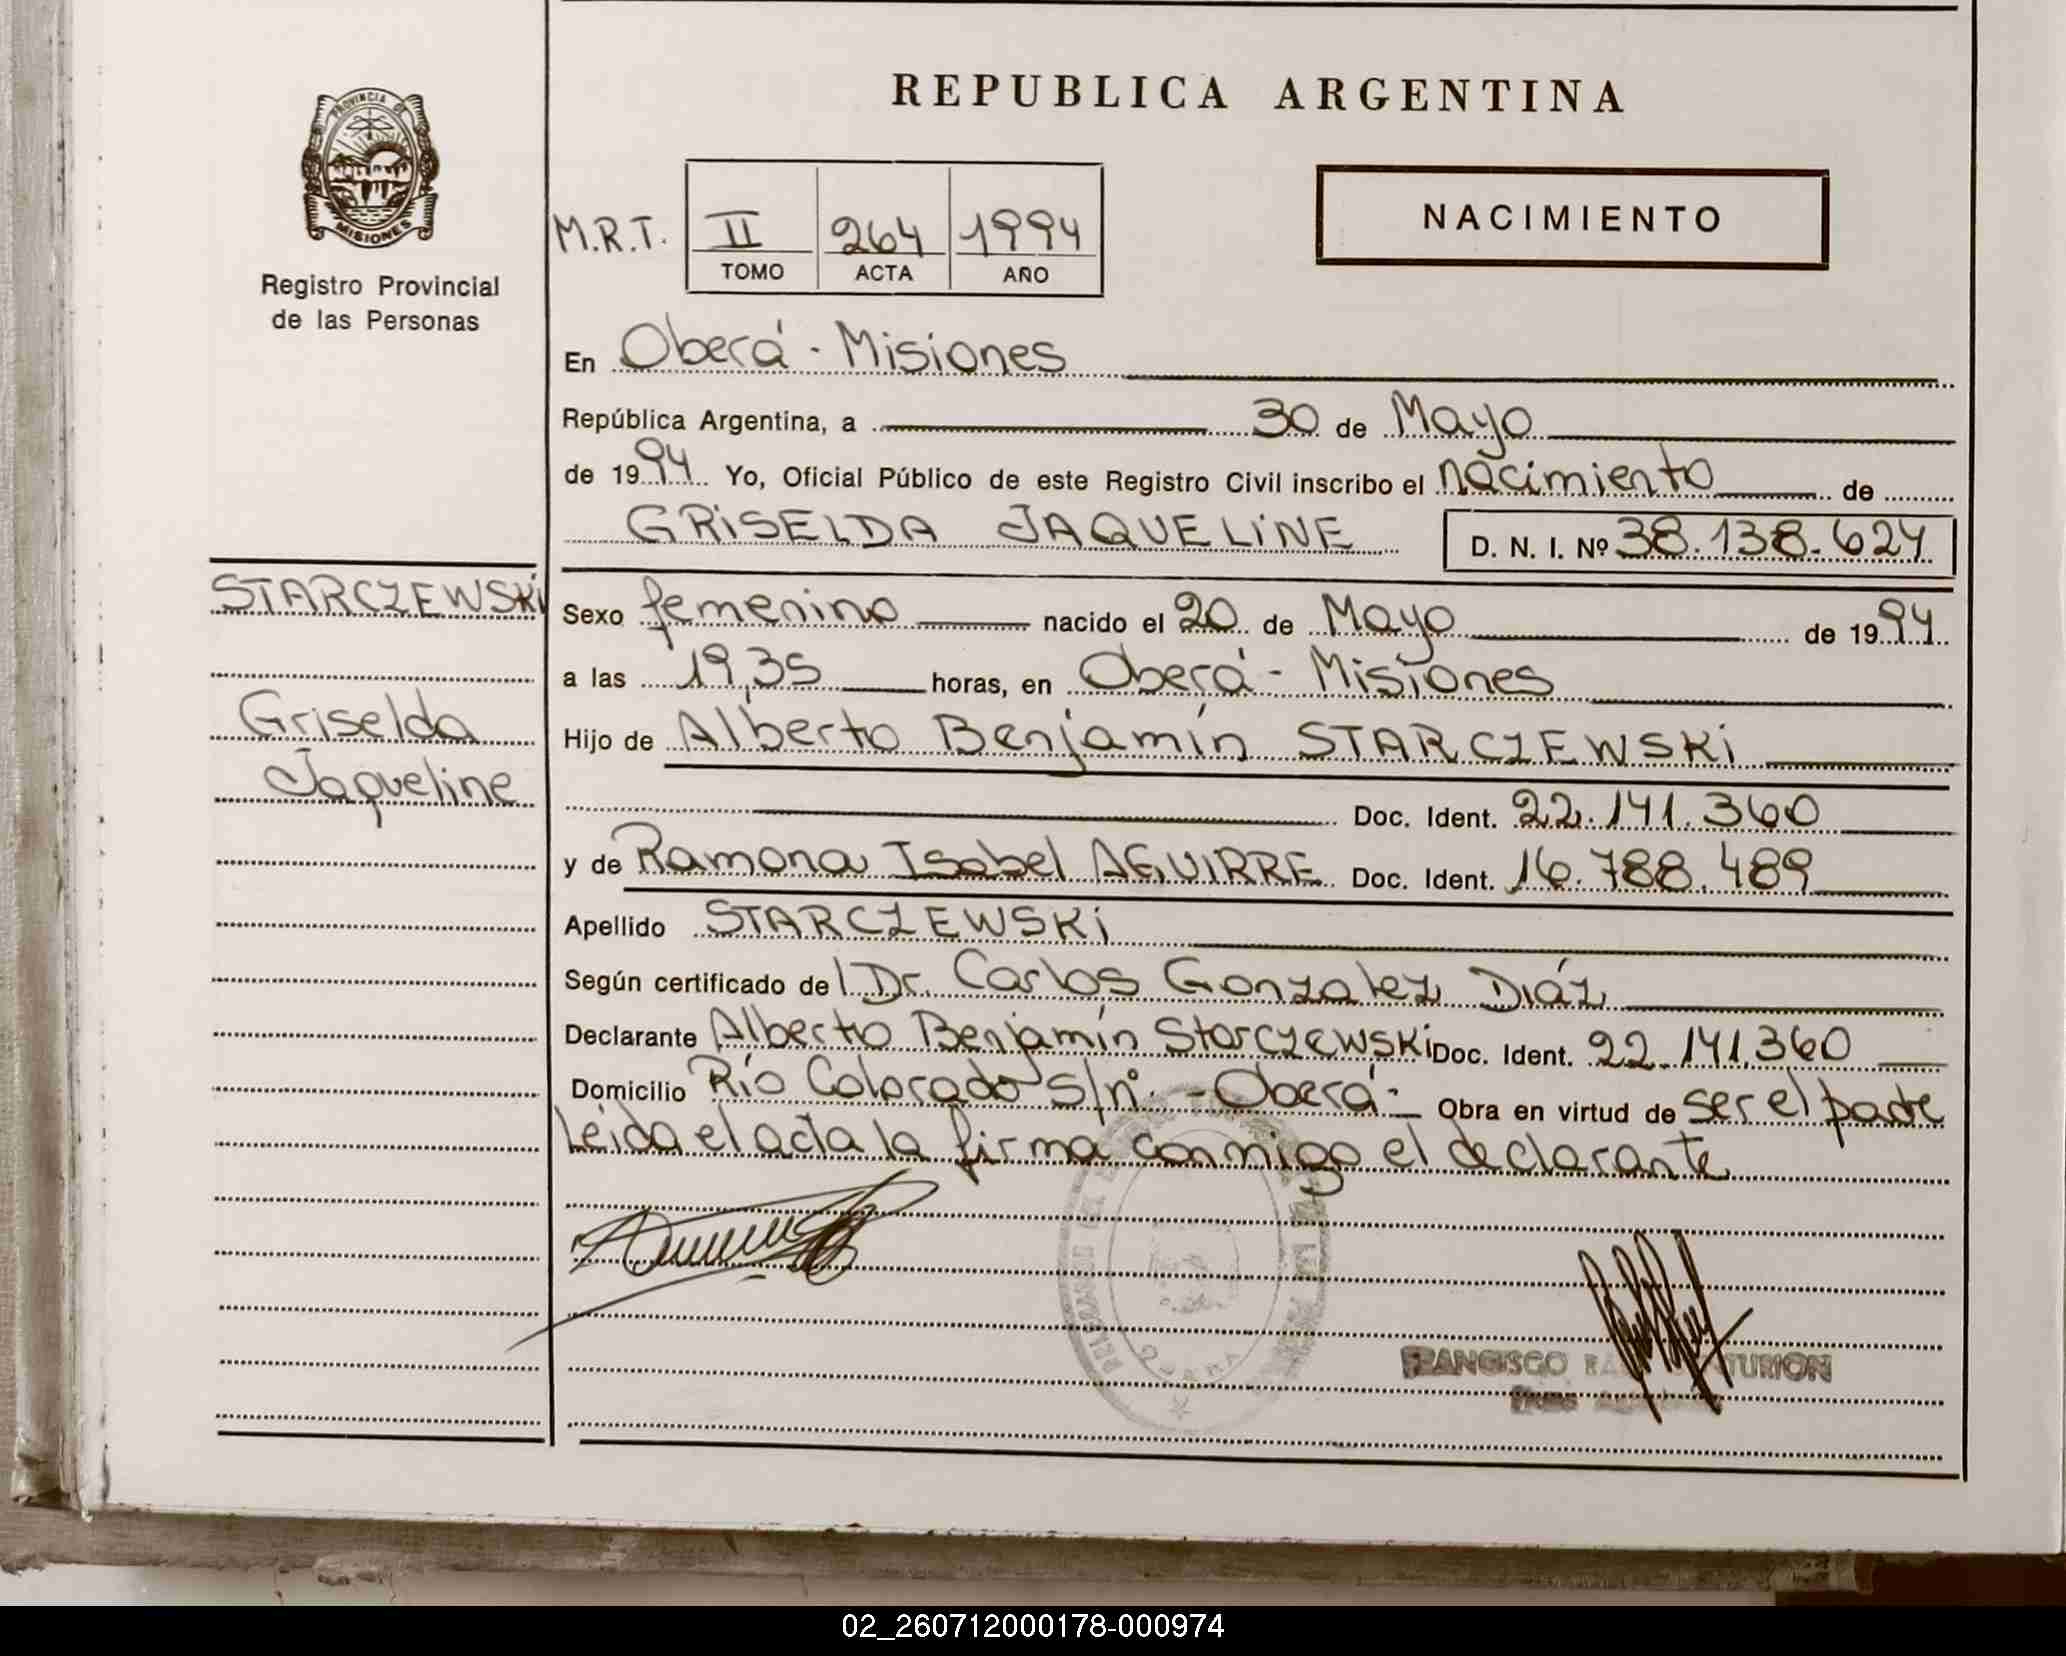 REPUBLICA ARGENTINA
PROVINCIA DE
MISIONES
Registro Provincial
de las Personas
NACIMIENTO
M.R.T. II 264 1994
TOMO ACTA AÑO
En Oberá - Misiones
República Argentina, a 30 de Mayo
de 1994 Yo, Oficial Público de este Registro Civil inscribo el nacimiento de
GRISELDA JAQUELINE D. N. I. Nº 38.138.624
STARCZEWSKi
Griselda
Jaqueline
Sexo femenino nacido el 20 de Mayo de 1994
a las 19,35 horas, en Oberá - Misiones
Hijo de Alberto Benjamín STARCZEWSKi
Doc. Ident. 22.141.360
y de Ramona Isabel AGUIRRE Doc. Ident. 16.788.489
Apellido STARCZEWSKi
Según certificado del Dr. Carlos Gonzalez Diáz
Declarante Alberto Benjamín StarCZEWSKi Doc. Ident. 22.141.360
Domicilio Río Colorado s/nº - Oberá - Obra en virtud de ser el padre
Leida el acta la firma conmigo el declarante
FRANCISCO
TURION
02_260712000178-000974